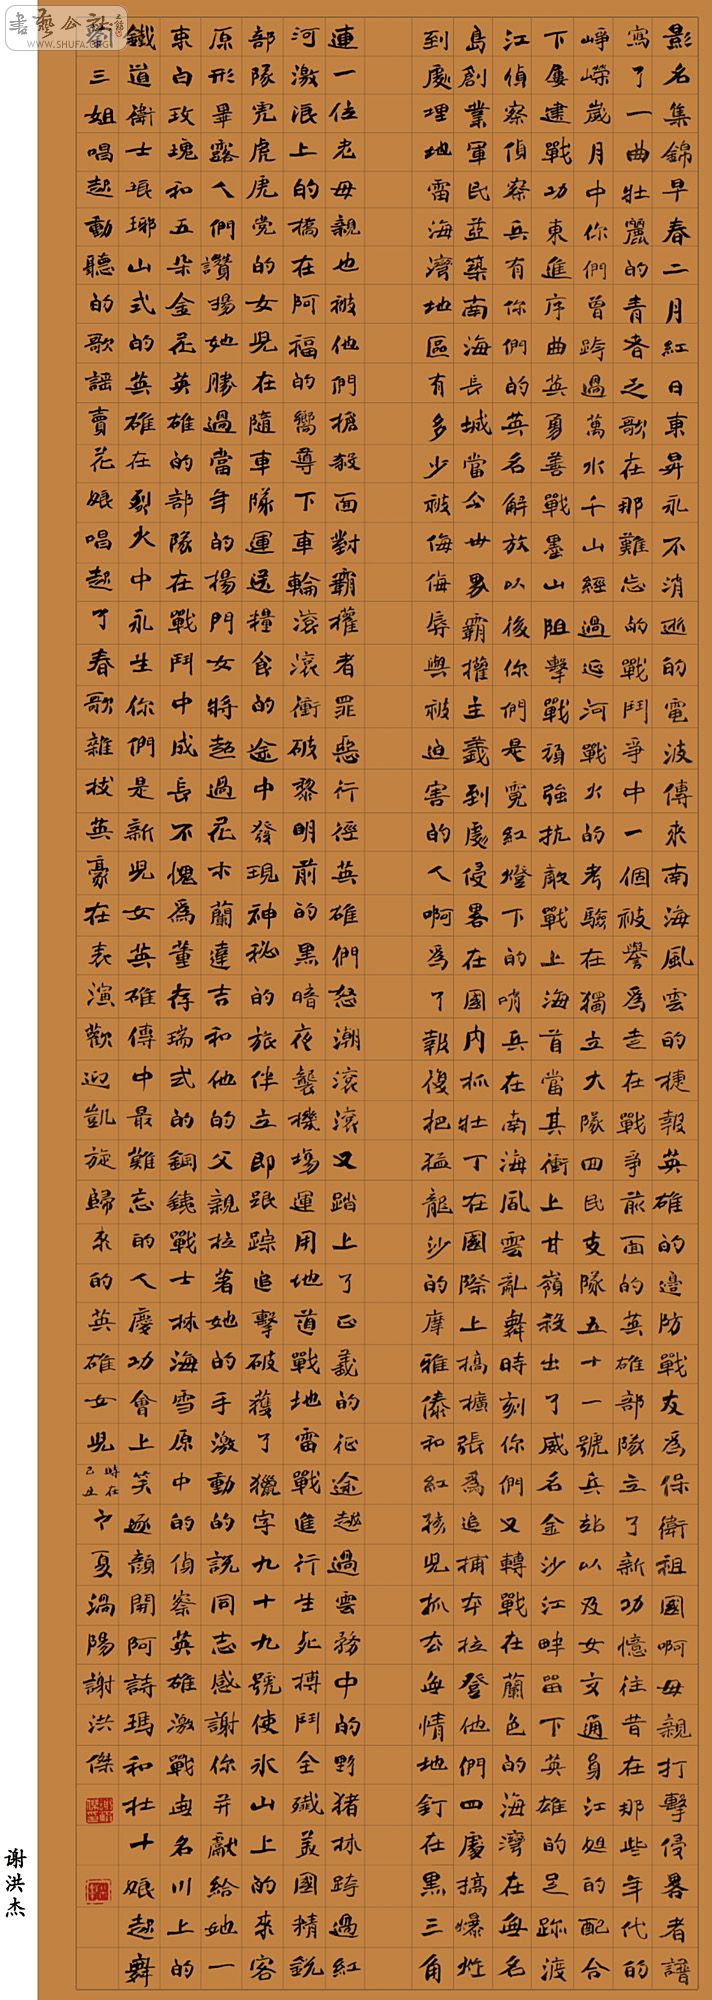 影名集錦早春二月紅日東昇永不消逝的電波傳來南海風雲的捷報英雄的邊防戰友爲保衛祖國啊母親打擊侵畧者譜
寫了一曲壯麗的青春之歌在那難忘的戰鬥爭中一個被譽爲走在戰爭前面的英雄部隊立了新功憶往昔在那些年代的
崢嶸歲月中你們曾跨過萬水千山經過延河戰火的考驗在獨立大隊四民支隊五十一號兵站以及女交通員江姐的配合
下屢建戰功東進序曲英勇善戰墨山阻擊戰頑強抗敵戰上海首當其衝上甘嶺殺出了威名金沙江畔留下英雄的足跡渡
江偵察偵察兵有你們的英名解放以後你們是霓紅燈下的哨兵在南海風雲亂舞時刻你們又轉戰在蘭色的海灣在無名
島創業軍民並築南海長城當今世界霸權主義到處侵畧在國内抓壯丁在國際上搞擴張爲追捕奔拉登他們四處搞爆炸
到處埋地雷海灣地區有多少被侮侮辱與被迫害的人啊爲了報復把猛龍沙的摩雅傣和紅孩兒抓去無情地釘在黑三角
連一位老母親也被他們搶殺面對霸權者罪惡行徑英雄們怒潮滾滾又踏上了正義的征途越過雲務中的野猪林跨過紅
河激浪上的橋在阿福的嚮導下車輪滾滾衝破黎明前的黑暗夜襲機場運用地道戰地雷戰進行生死搏鬥全殲美國精銳
部隊禿虎虎党的女兒在隨車隊運送糧食的途中發現神秘的旅伴立即跟踪追擊破獲了獵字九十九號使氷山上的來客
原形畢露人們讚揚她勝過當年的楊門女將超過花木蘭達吉和他的父親拉著她的手激動的説同志感謝你并獻給她一
束白玫瑰和五朵金花英雄的部隊在戰鬥中成長不愧爲董存瑞式的鋼鐵戰士林海雪原中的偵察英雄激戰無名川上的
鐵道衛士琅琊山式的英雄在烈火中永生你們是新兒女英雄傳中最難忘的人慶功會上笑逐顔開阿詩瑪和杜十娘起舞
劉三姐唱起動聽的歌謡賣花娘唱起了春歌雜技英豪在表演歡迎凱旋歸來的英雄女兒
時在
己丑
之夏渦陽謝洪傑
谢洪杰
書藝公社
WWW.SHUFA.ORG